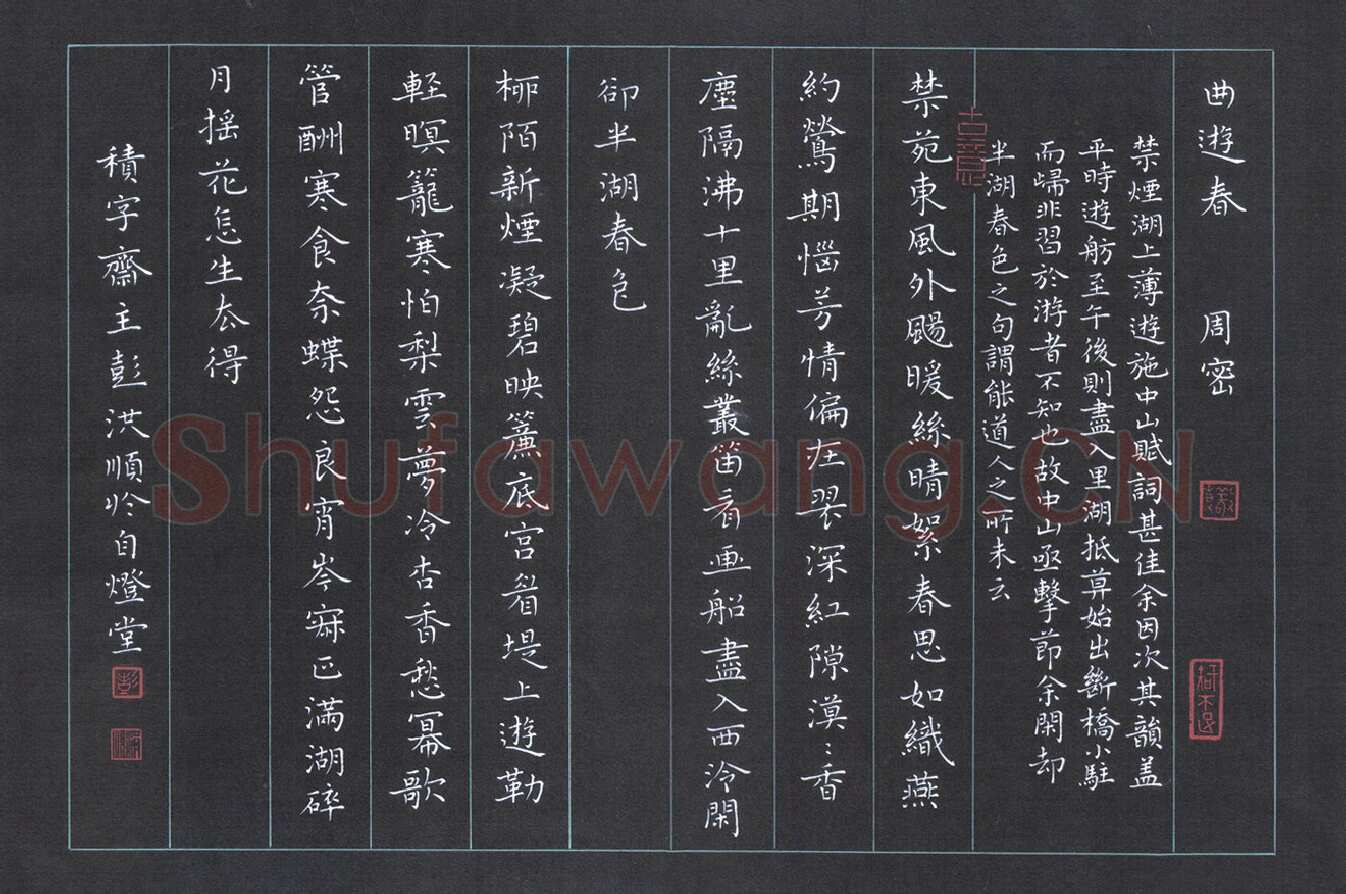 曲遊春 周密
禁煙湖上薄遊施中山賦詞甚佳余因次其韻盖
平時遊舫至午後則盡入里湖抵莫始出斷橋小駐
而歸非習於游者不知也故中山亟擊節余閑却
半湖春色之句謂能道人之所未云
禁苑東風外颺暖絲晴絮春思如織燕
約鶯期惱芳情偏在翠深紅隙漠〻香
塵隔沸十里亂絲叢笛看画船盡入西泠閑
卻半湖春色
柳陌新煙凝碧映簾底宫眉堤上遊勒
軽暝籠寒怕梨雲夢冷杏香愁冪歌
管酬寒食奈蝶怨良宵岑寂正滿湖碎
月摇花怎生厺得
積字齋主彭洪順於自燈堂
彭
Shufawang.CN